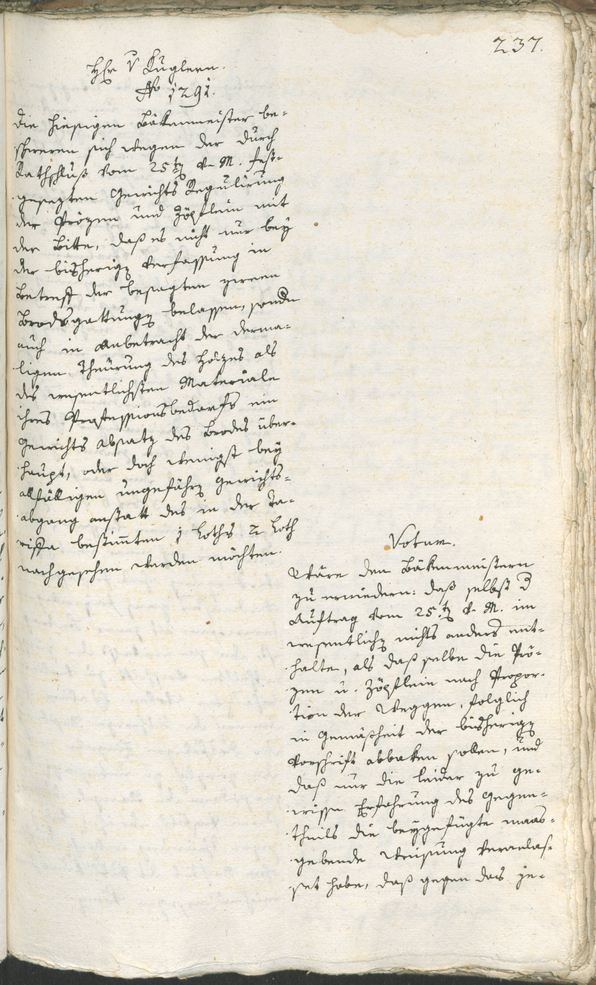 237.
Hr v Kuglern.
No 1291.
Die hiesigen Bäkenmeister be-
schweren sich wegen der durch
Rathschluß vom 25ten v. M. fest-
gesezten Gewichts Regulirung
der Prözen und Zöpflein mit
der Bitte, daß es nicht nur bey
der bisherigen Verfassung in
Betreff der besagten zween
Brodsgattungen belassen, sondern
auch in Anbetracht der derma-
ligen Theurung des Holzes als
des wesentlichsten Materiale
ihres Professionsbedarfs ein
Gewichts Absatz des Brodes über-
haupt, oder doch wenigst bey
allfälligen ungefähren Gewichts-
abgang anstatt des in der Ta-
riffa bestimten 1 Loths 2 Loth
nachgesehen werden möchten.
Votum.
Wäre den Bäkenmeistern
zu erwiedern: daß selbst d
Auftrag vom 25ten v. M. im
wesentlichen nichts anders ent-
halte, als daß selbe die Prö-
zen u. Zöpflein nach Propor-
tion der Weggen, folglich
in Gemäsheit der bisherigen
Vorschrift abbaken sollen, und
daß nur die leider zu ge-
wisse Erfahrung des Gegen-
theils die beygefügte maas-
gebende Weisung veranlas-
set habe, daß gegen das je-